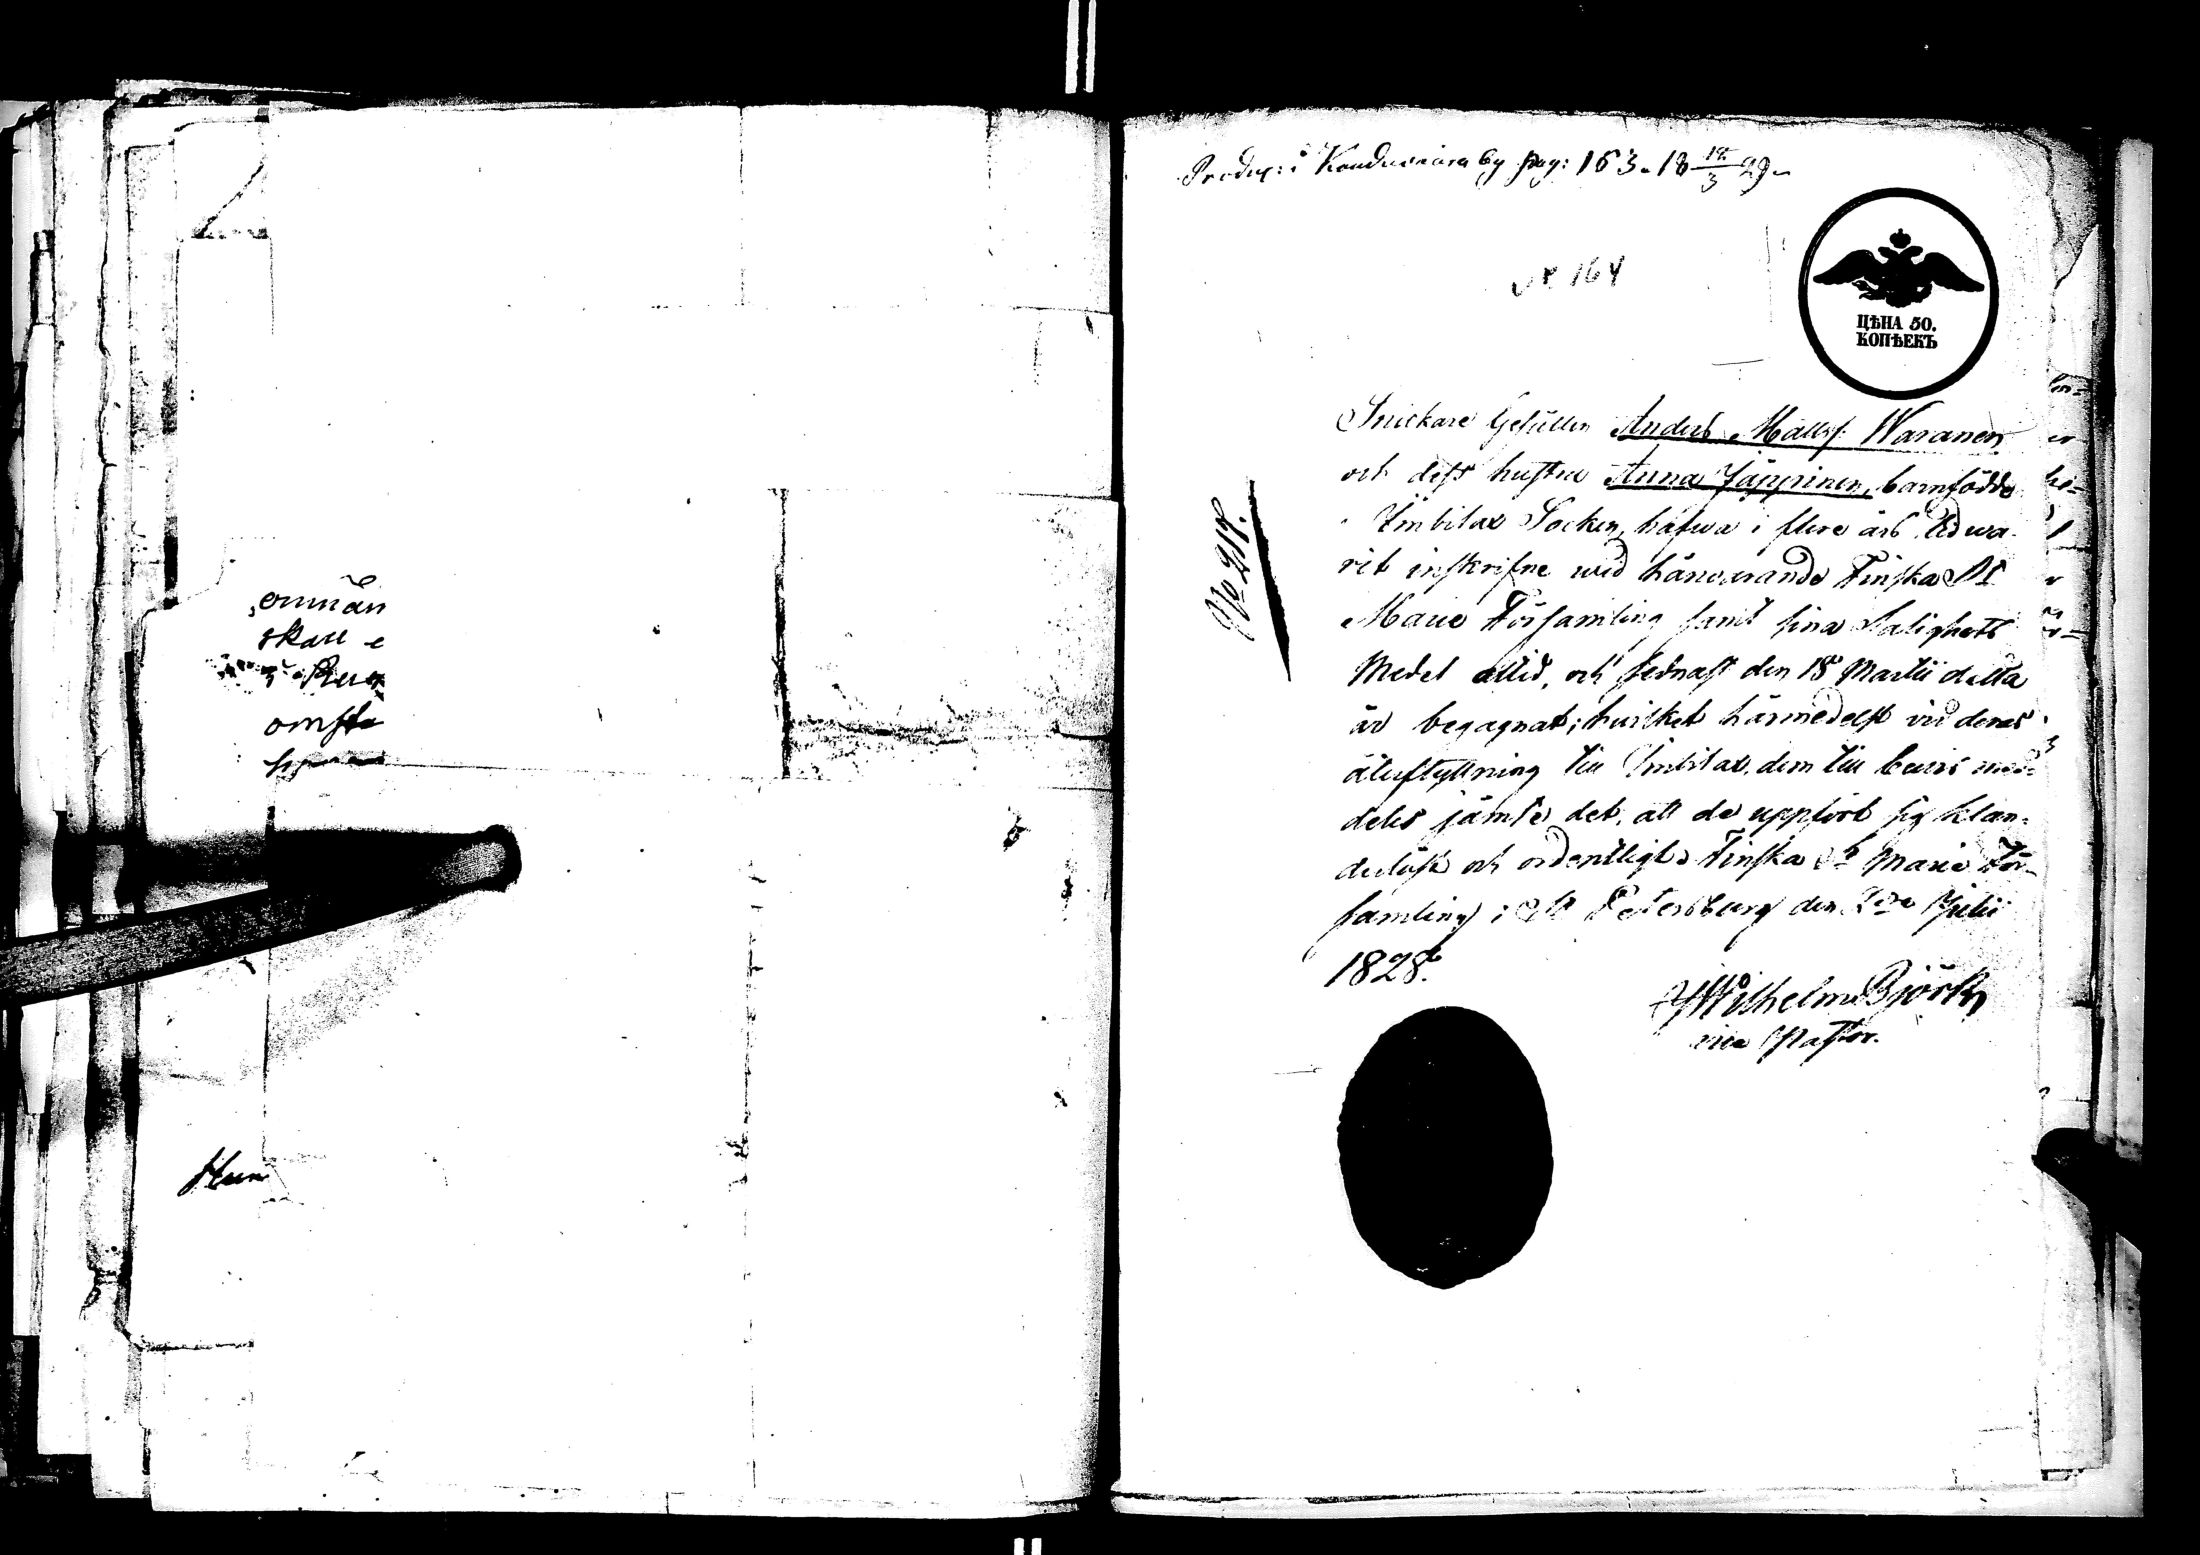 Produc: i Konduvaara by pag: 163. 18 19/3 29.
№ 164
ЦѢНА 50.
КОПѢЕКЪ
№ 217.
Snickare Gesällen Anders Mattsf. Waranen
och dess hustru Anna Jäppinen, barnfödde
i Imbilax Socken, hafva i flere års tid wa-
rit inskrifne wid härvarande Finska St
Marie Församling samt sina Salighets
Medel altid, och sednast den 18 Martii detta
år begagnat; hvilket härmedelst vid deras
återflyttning till Imbilax, dem till bevis med-
delas jämte det, att de uppfört sig klan-
derlöst och ordentligt. Finska St Marie För-
samling i St Petersburg den 2dra Julii
1828.
Wilhelm Björk
vice Pastor.
omän
skall e
omsta
Hun